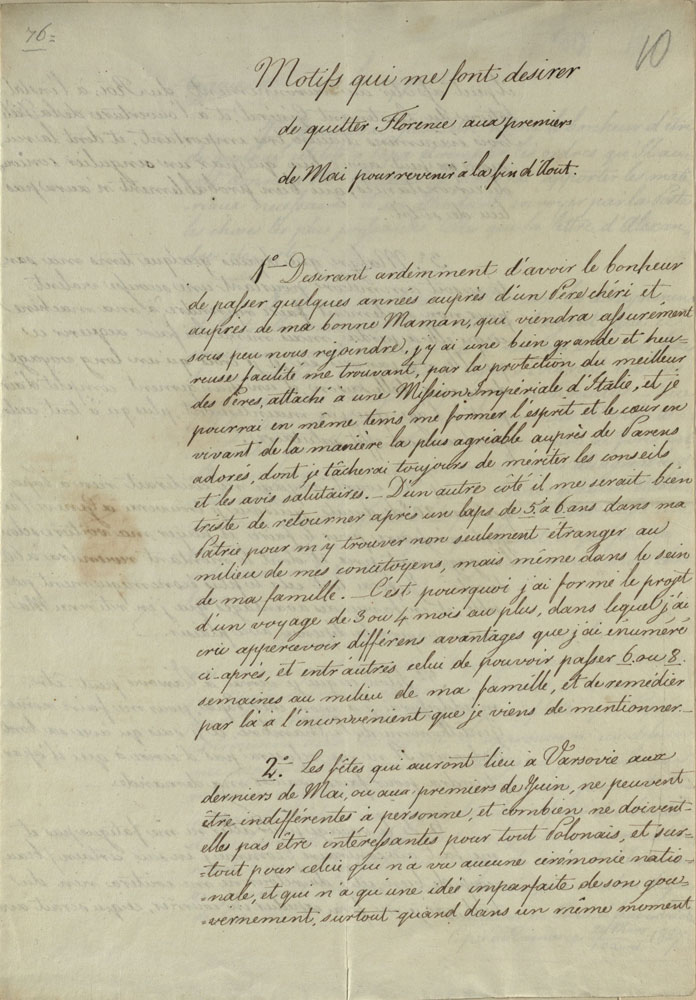 76=
10
Motifs qui me font desirer
de quitter Florence aux premiers
de Mai pour revenir à la fin d'Aout.
1º Desirant ardemment d'avoir le bonheur
de passer quelques années auprès d'un Père chéri et
auprès de ma bonne Maman, qui viendra assurément
sous peu nous rejoindre, j'y ai une bien grande et heu-
reuse facilité me trouvant, par la protection du meilleur
des Pères, attaché à une Mission Impériale d'Italie, et je
pourrai en même tems me former l'esprit et le cœur en
vivant de la manière la plus agréable auprès de Parens
adorés, dont je tâcherai toujours de mériter les conseils
et les avis salutaires. — D'un autre côté il me serait bien
triste de retourner après un laps de 5 à 6 ans dans ma
Patrie pour m'y trouver non seulement étranger au
milieu de mes concitoyens, mais même dans le sein
de ma famille. — C'est pourquoi j'ai formé le projet
d'un voyage de 3 ou 4 mois au plus, dans lequel j'ai
crû appercevoir différens avantages que j'ai énuméré
ci-après, et entr'autres celui de pouvoir passer 6 ou 8
semaines au milieu de ma famille, et de remédier
par là à l'inconvénient que je viens de mentionner. —
2º. Les fêtes qui auront lieu à Varsovie aux
derniers de Mai, ou aux premiers de Juin, ne peuvent
être indifférentes à personne, et combien ne doivent-
elles pas être intéressantes pour tout Polonais, et sur=
=tout pour celui qui n'a vu aucune cérémonie natio=
=nale, et qui n'a qu'une idée imparfaite de son gou=
=vernement, surtout quand dans un même moment